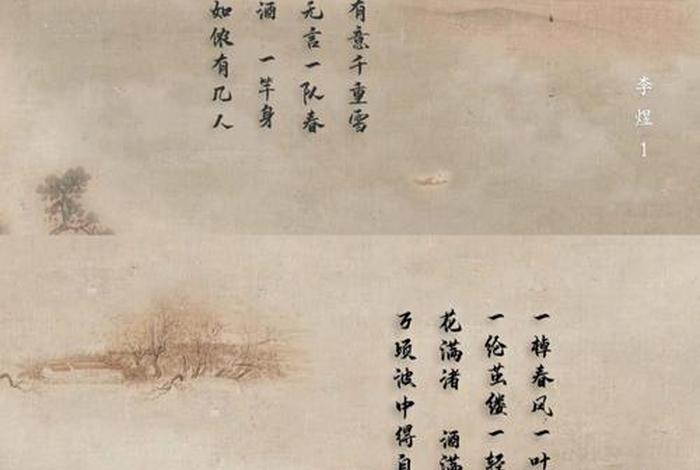 有意千重雪
无言一队春
酒 一竿身
如侬有几人
李煜1
一棹春风一叶
一纶茧缕一轻
花满渚 酒满
万顷波中得自